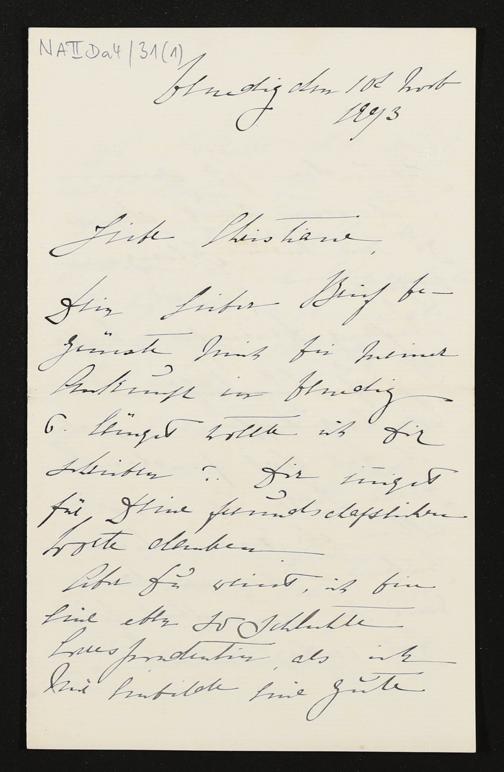 NAII Da4/31(1)
Venedig den 10t Novb
1893
Liebe Christiane,
Dein lieber Brief be-
grüsste mich bei meiner
Ankunft in Venedig
u. längst wollte ich Dir
schreiben u. Dir innigst
für Deine freundschaftlichen
Worte danken
Aber Du weisst, ich bin
eine eben so schlechte
Correspondentin, als ich
mir einbilde eine gute